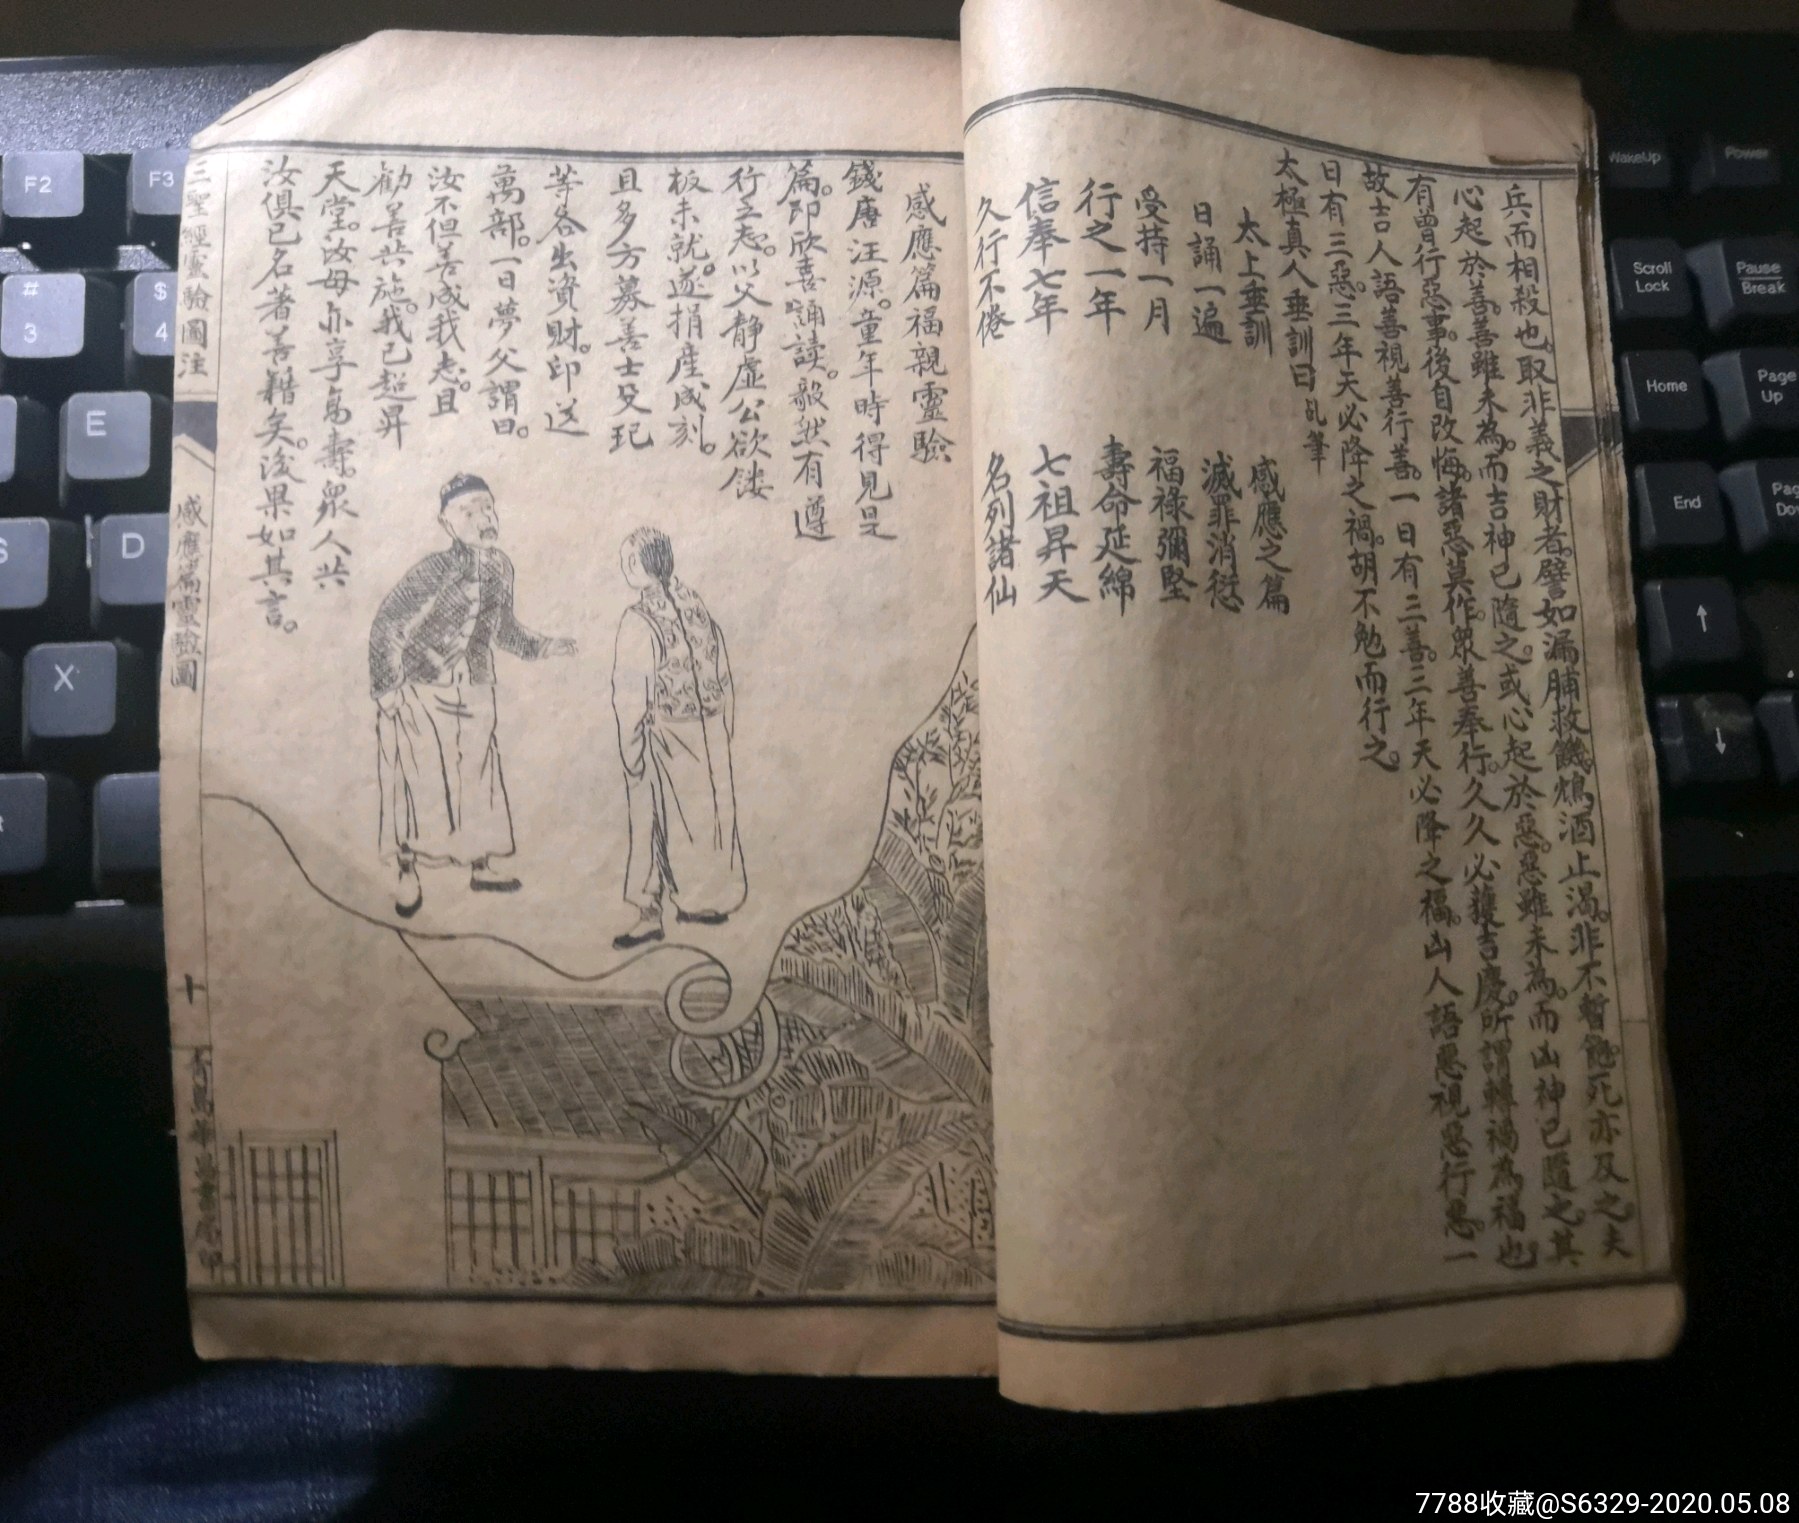 兵而相殺也。取非義之財者。譬如漏脯救饑。鴆酒止渴。非不暫飽。死亦及之。夫
心起於善。善雖未為。而吉神已隨之。或心起於惡。惡雖未為。而凶神已隨之。其
有曾行惡事。後自改悔。諸惡莫作。眾善奉行。久久必獲吉慶。所謂轉禍為福也
故吉人語善視善行善。一日有三善。三年天必降之福。凶人語惡視惡行惡。一
日有三惡。三年天必降之禍。胡不勉而行之。
太極真人垂訓曰乩筆
太上垂訓 感應之篇
日誦一遍 滅罪消愆
受持一月 福祿彌堅
行之一年 壽命延綿
信奉七年 七祖昇天
久行不倦 名列諸仙
感應篇福親靈驗
錢唐汪源。童年時得見是
篇。即欣喜誦讀。毅然有遵
行之志。以父靜虛公欲鏤
板未就。遂捐產成刻。
且多方募善士
等各出資財。印送
萬部。一日夢父謂曰。
汝不但善成我志。且
勸善共施。我已超昇
天堂。汝母亦享高壽。眾人共
汝俱已名著善籍矣。後果如其言。
三聖經靈驗圖注
感應篇靈驗圖
十
F2
F3
#
3
$
4
E
D
S
X
WakeUp
Power
Scroll
Lock
Pause
Break
Home
Page
Up
End
↑
↓
7788收藏@S6329-2020.05.08